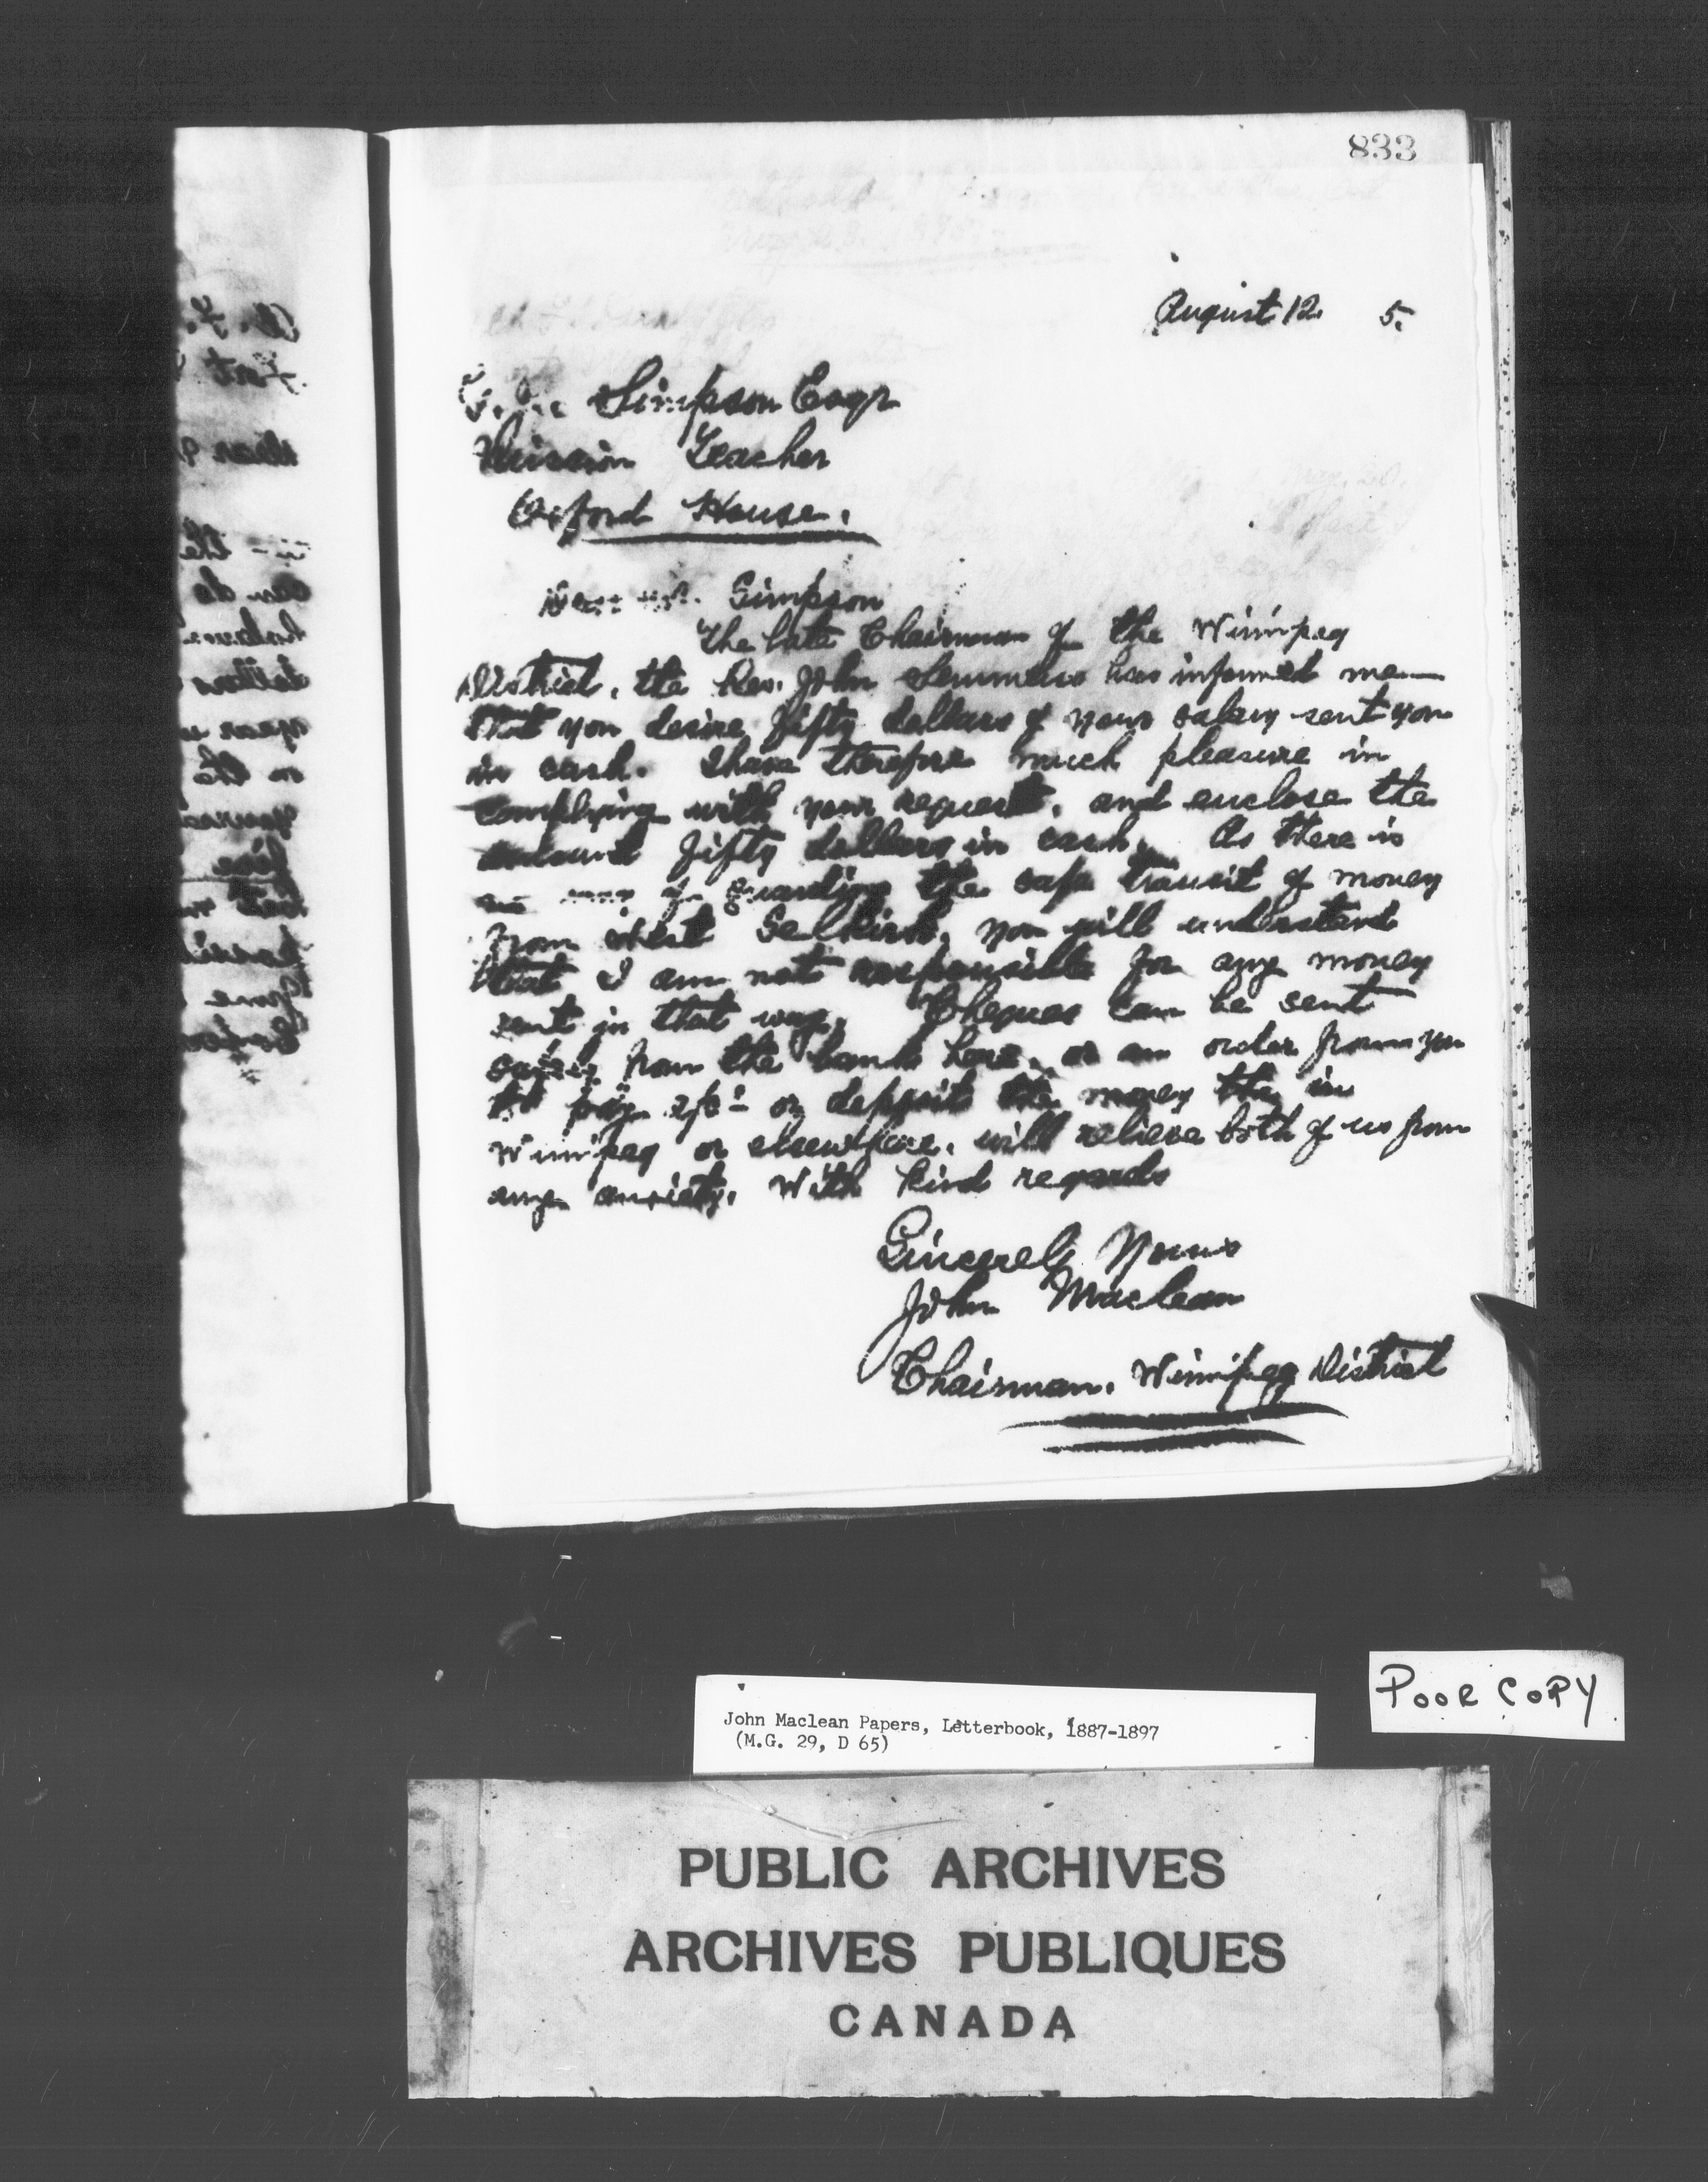 833
August 12. 5.
Simpson Esqr
Mission Teacher
Oxford House.
Dear Mr. Simpson
The late Chairman of the Winnipeg
District, the Rev. John Semmens has informed me
that you desire fifty dollars of your salary sent you
in cash. I have therefore much pleasure in
complying with your request, and enclose the
amount fifty dollars in cash. As there is
no way of guarding the safe transit of money
from West Selkirk, you will understand
that I am not responsible for any money
sent in that way. Cheques can be sent
safely from the bank here, or an order from you
to pay a/c or deposit the money in
Winnipeg or elsewhere, will relieve both of us from
any anxiety. With kind regards
Sincerely Yours
John Maclean
Chairman, Winnipeg District
POOR COPY
John Maclean Papers, Letterbook, 1887-1897
(M.G. 29, D 65)
PUBLIC ARCHIVES
ARCHIVES PUBLIQUES
CANADA